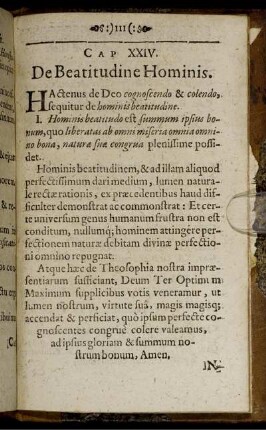 :)III(:
CAP XXIV.
De Beatitudine Hominis.
HActenus de Deo cognoscendo & colendo,
sequitur de hominis beatitudine.
I. Hominis beatitudo est summum ipsius bo-
num, quo liberatus ab omni miseria omnia omni-
no bona, naturæ suæ congrua plenissime possi-
det.
Hominis beatitudinem, & ad illam aliquod
perfectissimum dari medium, lumen natura-
le rectæ rationis, ex præcedentibus haud dif-
ficulter demonstrat ac commonstrat: Et cer-
te universum genus humanum frustra non est
conditum, nullumq; hominem attingere per-
fectionem naturæ debitam divinæ perfectio-
ni omnino repugnat.
Atque hæc de Theosophia nostra impræ-
sentiarum sufficiant, Deum Ter Optimum
Maximum supplicibus votis veneramur, ut
lumen nostrum, virtute suâ, magis magisq;
accendat & perficiat, quò ipsum perfecte co-
gnoscentes congruè colere valeamus,
ad ipsius gloriam & summum no-
strum bonum, Amen,
IN-